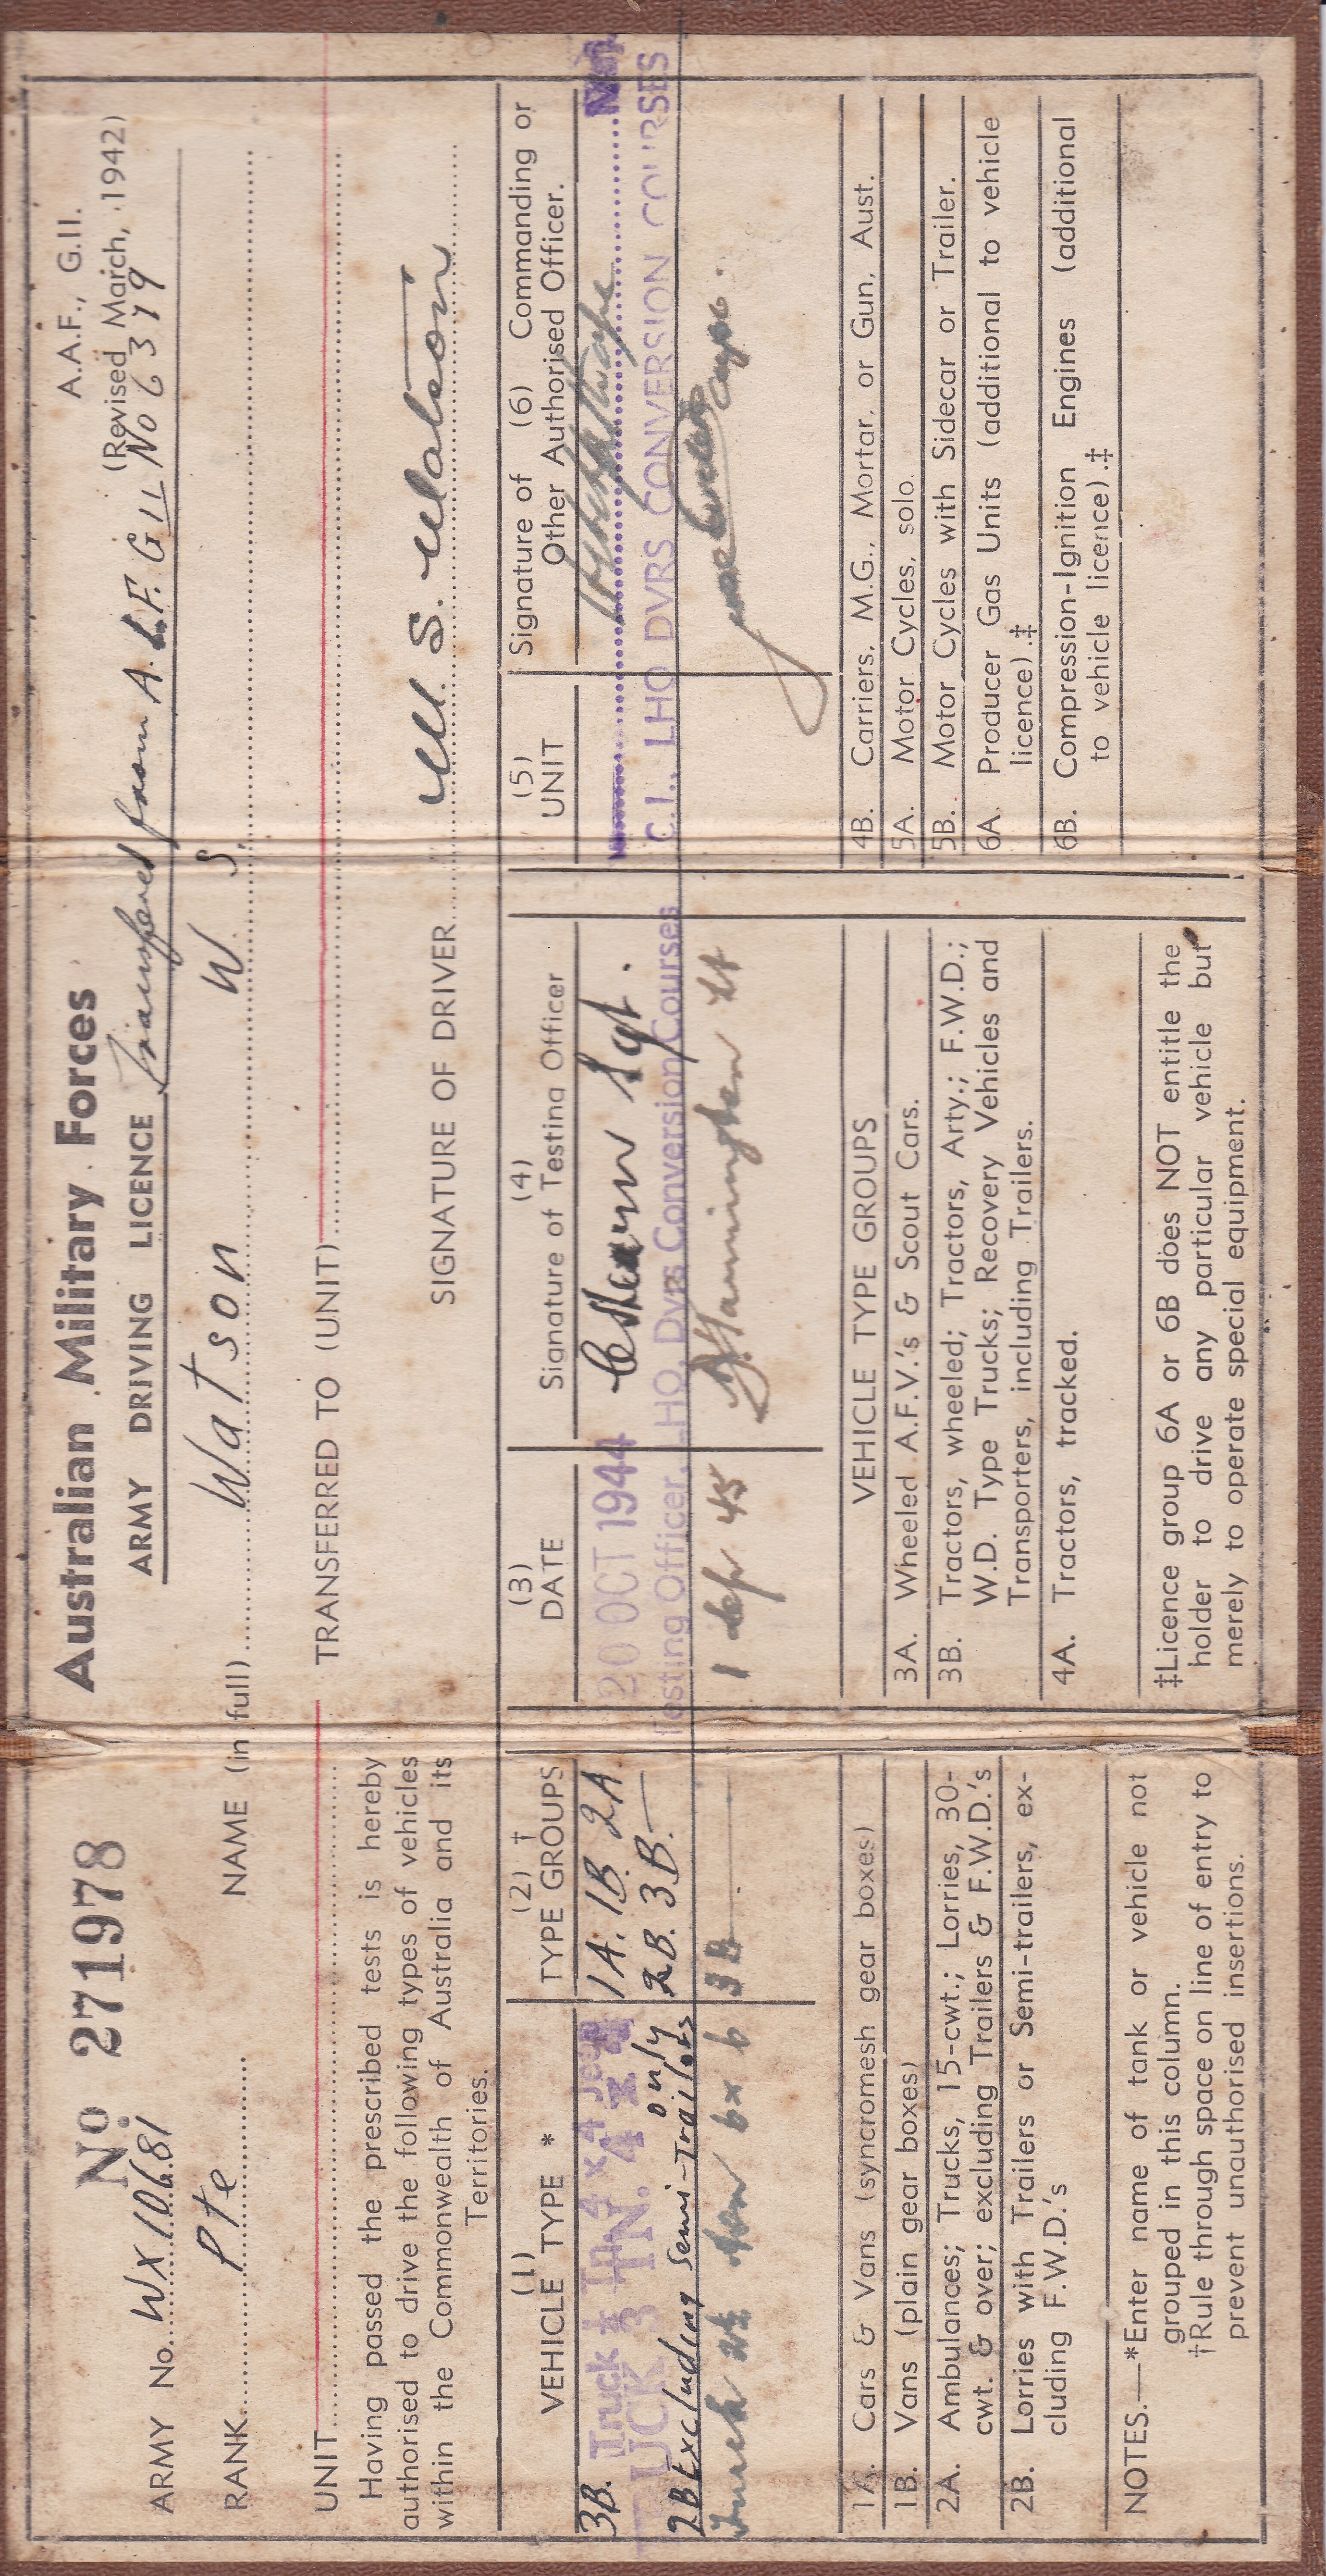 No 271978
Australian Military Forces
A.A.F., G.11.
(Revised March, 1942)
ARMY No. WX 10681
ARMY DRIVING LICENCE Transfered from A.A.F. G 11 No 6379
RANK Pte
NAME (in full) Watson W S.
UNIT
TRANSFERRED TO (UNIT)
Having passed the prescribed tests is hereby
authorised to drive the following types of vehicles
within the Commonwealth of Australia and its
Territories.
SIGNATURE OF DRIVER W. S. Watson
(1)
VEHICLE TYPE *
(2) †
TYPE GROUPS
(3)
DATE
(4)
Signature of Testing Officer
(5)
UNIT
Signature of (6) Commanding or
Other Authorised Officer.
3B. Truck 4 x 4 Jeep
TRUCK 3 TN. 4 x 4
2B Excluding Semi-Trailers only
1A. 1B. 2A
2B. 3B.
20 OCT 1944
Sgt.
Testing Officer, LHQ. Dvrs Conversion Courses
C.I., LHQ DVRS CONVERSION COURSES
Truck 6 x 6
3B
1 Sep 45
Lt
VEHICLE TYPE GROUPS
1A. Cars & Vans (syncromesh gear boxes)
1B. Vans (plain gear boxes)
2A. Ambulances; Trucks, 15-cwt.; Lorries, 30-
cwt. & over; excluding Trailers & F.W.D.'s
2B. Lorries with Trailers or Semi-trailers, ex-
cluding F.W.D.'s
3A. Wheeled A.F.V.'s & Scout Cars.
3B. Tractors, wheeled; Tractors, Arty.; F.W.D.;
W.D. Type Trucks; Recovery Vehicles and
Transporters, including Trailers.
4A. Tractors, tracked.
4B. Carriers, M.G., Mortar, or Gun, Aust.
5A. Motor Cycles, solo.
5B. Motor Cycles with Sidecar or Trailer.
6A. Producer Gas Units (additional to vehicle
licence).‡
6B. Compression-Ignition Engines (additional
to vehicle licence).‡
NOTES.—*Enter name of tank or vehicle not
grouped in this column.
†Rule through space on line of entry to
prevent unauthorised insertions.
‡Licence group 6A or 6B does NOT entitle the
holder to drive any particular vehicle but
merely to operate special equipment.